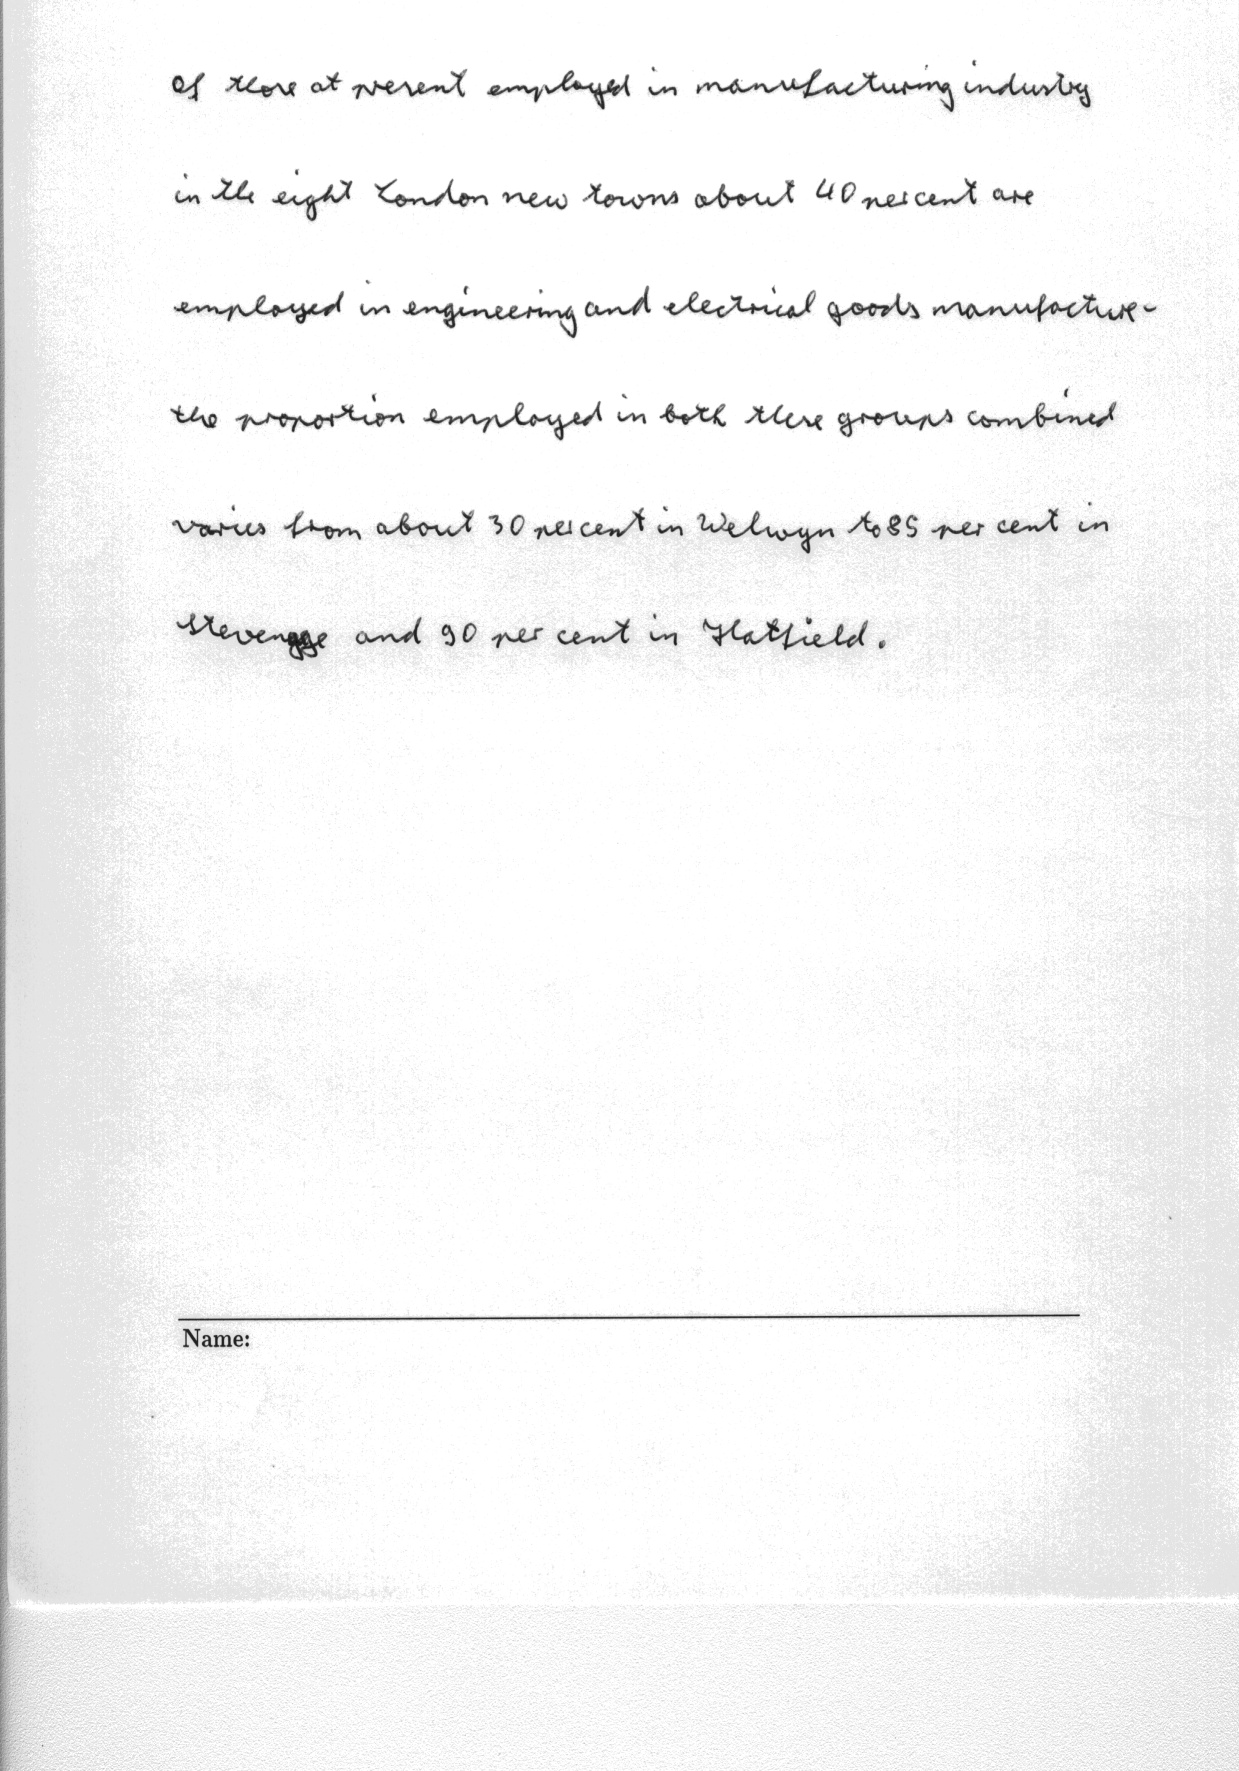 Of those at present employed in manufacturing industry
in the eight London new towns about 40 per cent are
employed in engineering and electrical goods manufacture-
the proportion employed in both these groups combined
varies from about 30 per cent in Welwyn to 85 per cent in
Stevenage and 90 per cent in Hatfield.
Name: